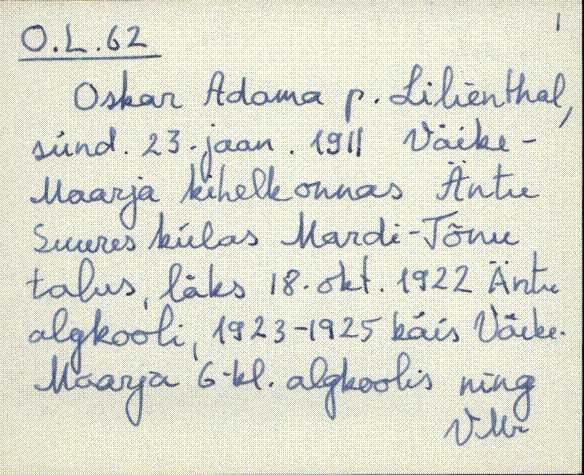 1
O.L.62
Oskar Adama p. Lilienthal,
sünd. 23. jaan. 1911 Väike-
Maarja kihelkonnas Äntu
Suures külas Mardi-Tõnu
talus, läks 18. okt. 1922 Äntu
algkooli, 1923-1925 käis Väike-
Maarja 6-kl. algkoolis ning